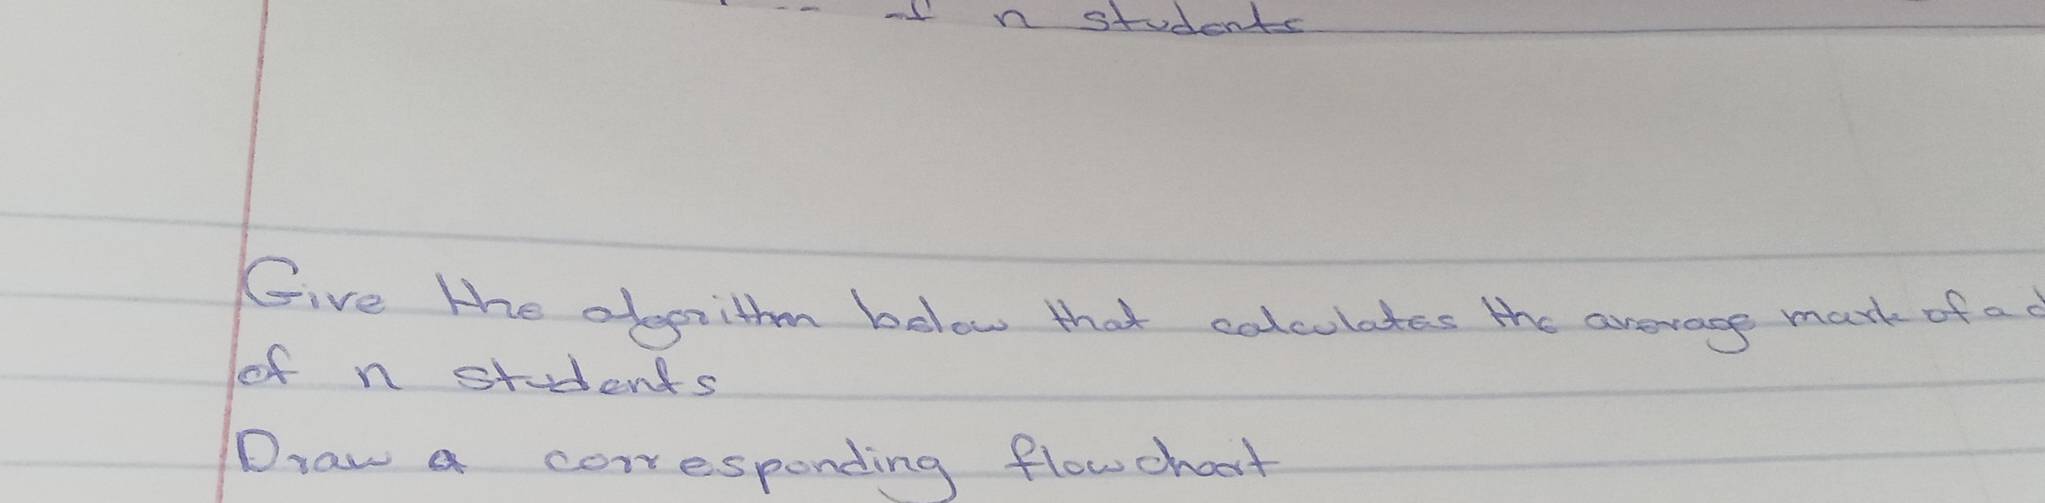 n students
Give the algorithm below that calculates the average mark of a
of n students
Draw a corresponding flowchart